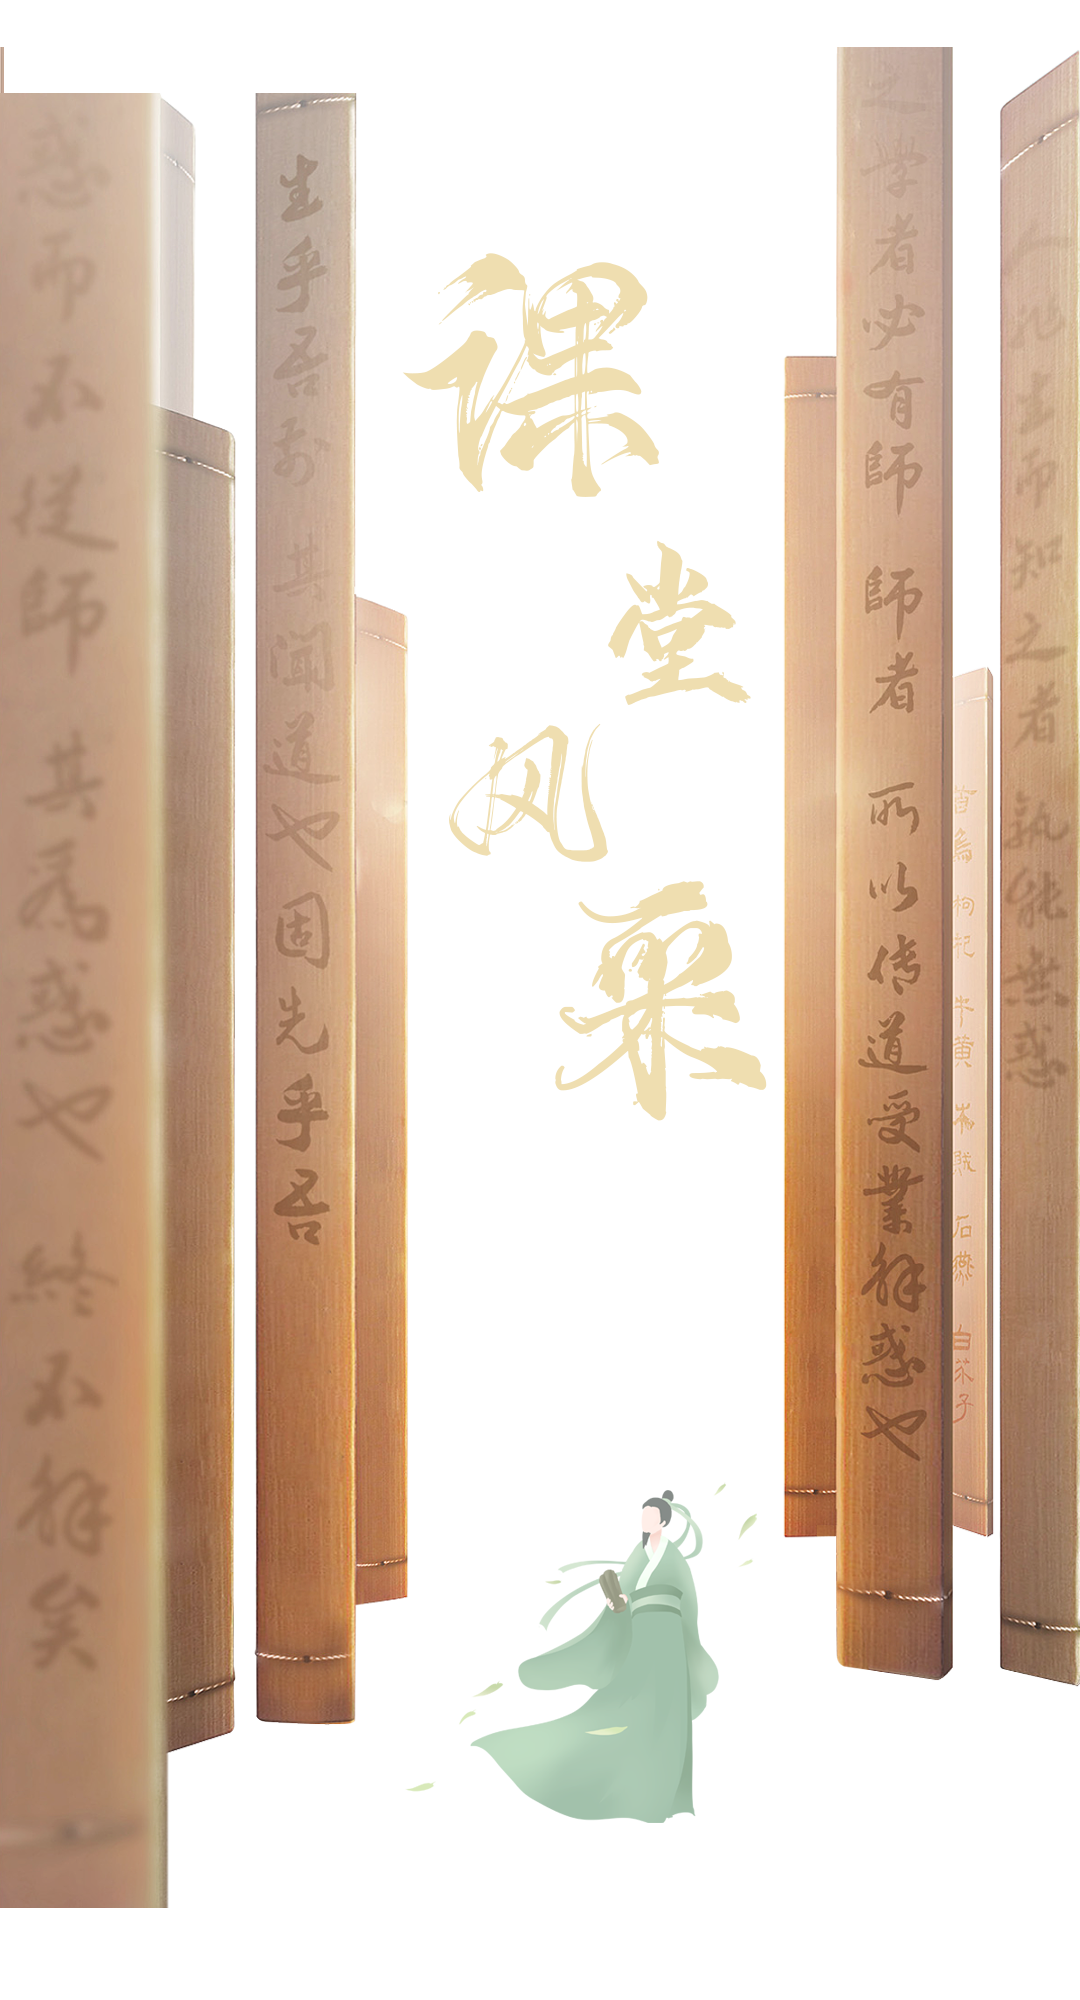 课
堂
风
采
之學者必有師 師者 所以传道受業解惑也
人非生而知之者 孰能無惑
惑而不從師 其爲惑也 終不解矣
生乎吾前 其聞道也固先乎吾
首烏 枸杞 牛黄 木賊 石燕 白芥子